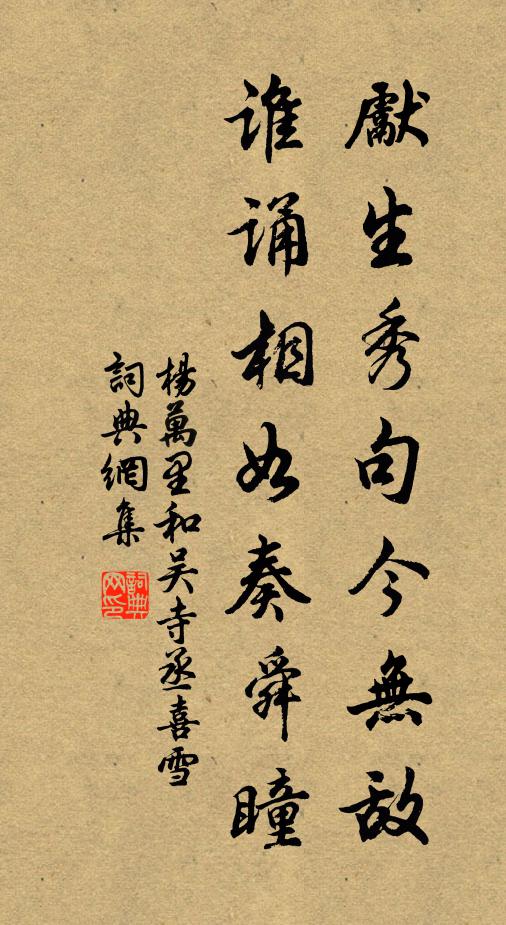 獻生秀句今無敵
谁诵相如奏舜瞳
楊萬里和吴寺丞喜雪
詞典網集
詞典网印